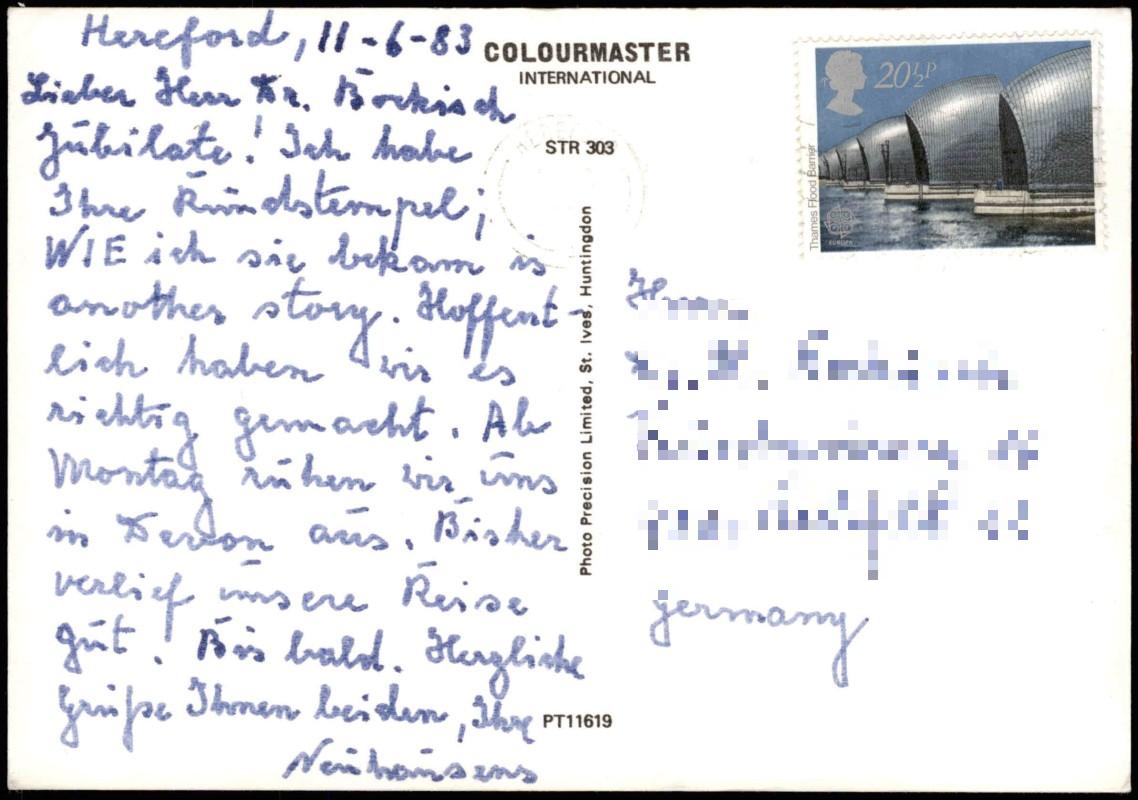 Hereford, 11-6-83
Lieber Herr Dr. Bockisch
Jubilate! Ich habe
Ihre Rundstempel;
WIE ich sie bekam is
another story. Hoffent-
lich haben wir es
richtig gemacht. Ab
Montag ruhen wir uns
in Devon aus. Bisher
verlief unsere Reise
gut! Bis bald. Herzliche
Grüße Ihnen beiden, Ihre
Neuhausens
COLOURMASTER
INTERNATIONAL
STR 303
Photo Precision Limited, St. Ives, Huntingdon
PT11619
20½P
Thames Flood Barrier
EUROPA
Germany